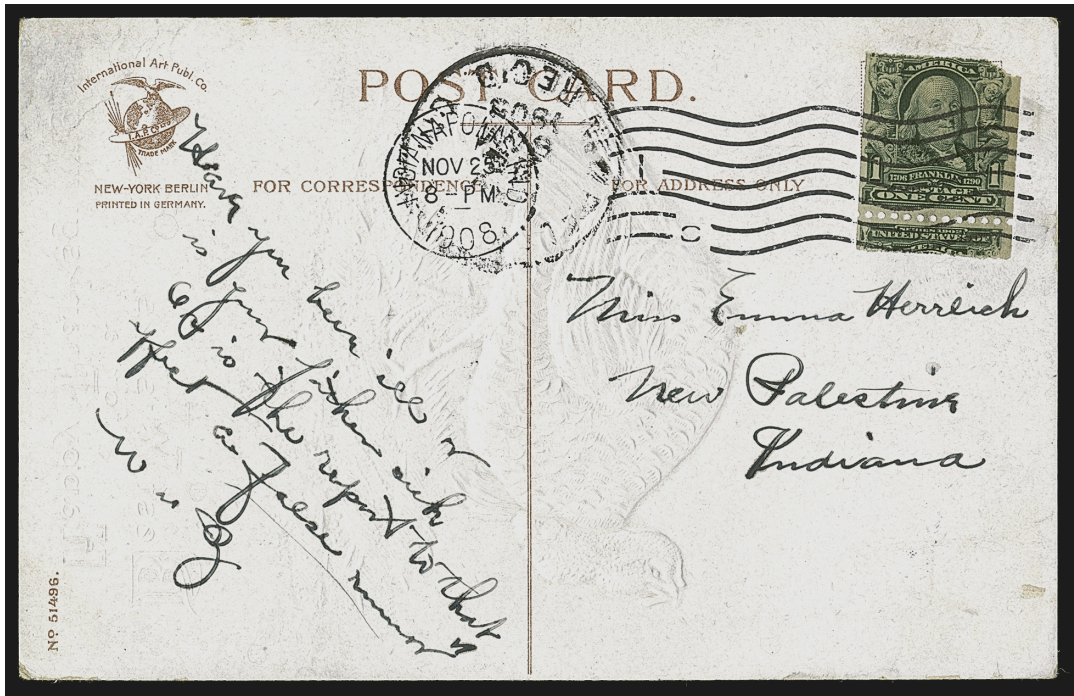 International Art Publ. Co.
TRADE MARK
NEW-YORK BERLIN
PRINTED IN GERMANY.
POST CARD.
FOR CORRESPONDENCE
FOR ADDRESS ONLY
INDIANAPOLIS, IND.
NOV 25
8-PM
1908
REC'D
1908
AMERICA
1706 FRANKLIN 1790
POSTAGE
1 ONE CENT 1
UNITED STATES OF
Have you been ill or
is your sick
or is the report to that
effect a false rumor
Miss Emma Herrlich
New Palestine
Indiana
No 51496.